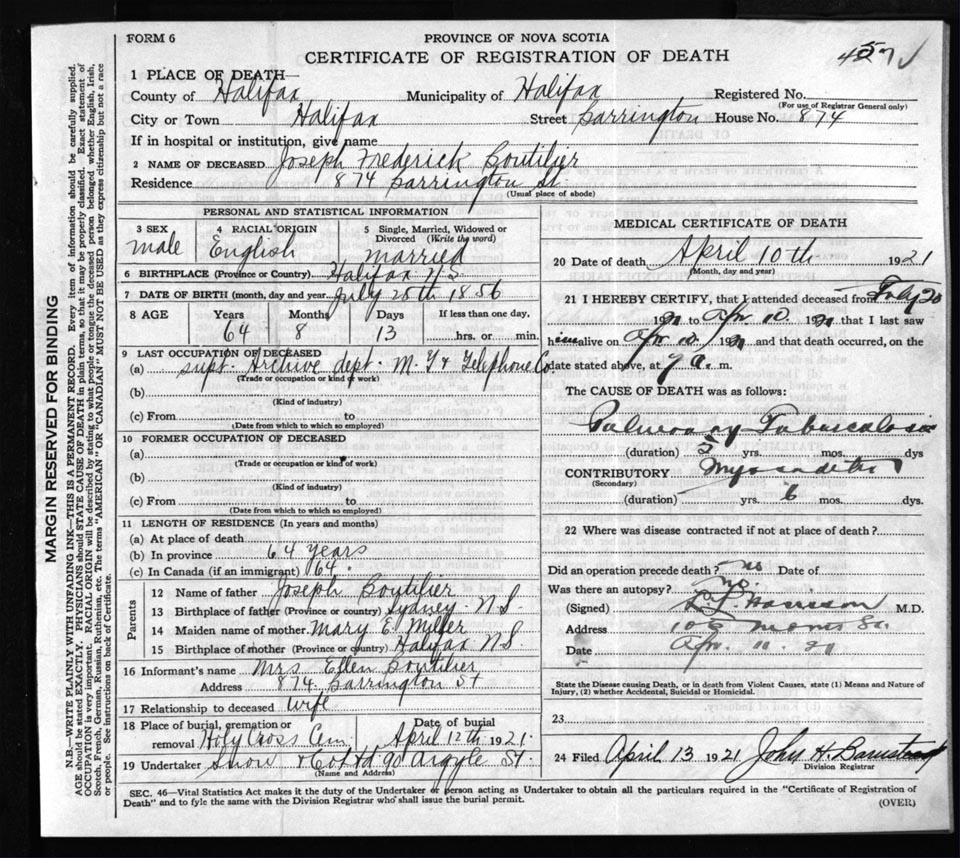 FORM 6
PROVINCE OF NOVA SCOTIA
CERTIFICATE OF REGISTRATION OF DEATH
457
1 PLACE OF DEATH—
County of Halifax Municipality of Halifax Registered No.
(For use of Registrar General only)
City or Town Halifax Street Barrington House No. 874
If in hospital or institution, give name
2 NAME OF DECEASED Joseph Frederick Boutilier
Residence 874 Barrington St.
(Usual place of abode)
PERSONAL AND STATISTICAL INFORMATION
3 SEX
male
4 RACIAL ORIGIN
English
5 Single, Married, Widowed or
Divorced (Write the word)
Married
6 BIRTHPLACE (Province or Country) Halifax N S
7 DATE OF BIRTH (month, day and year July 25th 1856
8 AGE Years Months Days If less than one day,
64 8 13 hrs. or min.
9 LAST OCCUPATION OF DECEASED
(a) supt. Archive dept. M. T & Telephone Co
(Trade or occupation or kind of work)
(b)
(Kind of industry)
(c) From to
(Date from which to which so employed)
10 FORMER OCCUPATION OF DECEASED
(a)
(Trade or occupation or kind or work)
(b)
(Kind of industry)
(c) From to
(Date from which to which so employed)
11 LENGTH OF RESIDENCE (In years and months)
(a) At place of death
(b) In province 64 years
(c) In Canada (if an immigrant) 64.
Parents
12 Name of father Joseph Boutilier
13 Birthplace of father (Province or country) Sydney N S
14 Maiden name of mother Mary E. Miller
15 Birthplace of mother (Province or country) Halifax N S
16 Informant's name Mrs Ellen Boutilier
Address 874 Barrington St
17 Relationship to deceased wife
18 Place of burial, cremation or Date of burial
removal Holy Cross Cem April 12th 1921.
19 Undertaker Snow & Co Ltd 90 Argyle St.
(Name and Address)
MEDICAL CERTIFICATE OF DEATH
20 Date of death April 10th 1921
(Month, day and year)
21 I HEREBY CERTIFY, that I attended deceased from Feby 20
1921 to Apr. 10. 1921 that I last saw
him alive on Apr. 10. 1921 and that death occurred, on the
date stated above, at 9 a. m.
The CAUSE OF DEATH was as follows:
Pulmonary Tuberculosis
(duration) 5 yrs. mos. days
CONTRIBUTORY Myocarditis
(Secondary)
(duration) yrs. 6 mos. dys.
22 Where was disease contracted if not at place of death?
Did an operation precede death? no Date of
Was there an autopsy? no.
(Signed) Harrison M.D.
Address 106 Morris St.
Date Apr. 11. 21
State the Disease causing Death, or in death from Violent Causes, state (1) Means and Nature of
Injury, (2) whether Accidental, Suicidal or Homicidal.
23
24 Filed April 13 1921 John H. Barnstead
Division Registrar
SEC. 46—Vital Statistics Act makes it the duty of the Undertaker or person acting as Undertaker to obtain all the particulars required in the "Certificate of Registration of
Death" and to fyle the same with the Division Registrar who shall issue the burial permit.
(OVER)
MARGIN RESERVED FOR BINDING
N.B.—WRITE PLAINLY WITH UNFADING INK—THIS IS A PERMANENT RECORD. Every item of information should be carefully supplied.
AGE should be stated EXACTLY. PHYSICIANS should STATE CAUSE OF DEATH in plain terms, so that it may be properly classified. Exact statement of
OCCUPATION is very important. RACIAL ORIGIN will be described by stating to what people or tongue the deceased person belonged whether English, Irish,
Scotch, French, German, Russian, Ruthenian, etc. The terms "AMERICAN" OR "CANADIAN" MUST NOT BE USED as they express citizenship but not a race
or people. See instructions on back of Certificate.